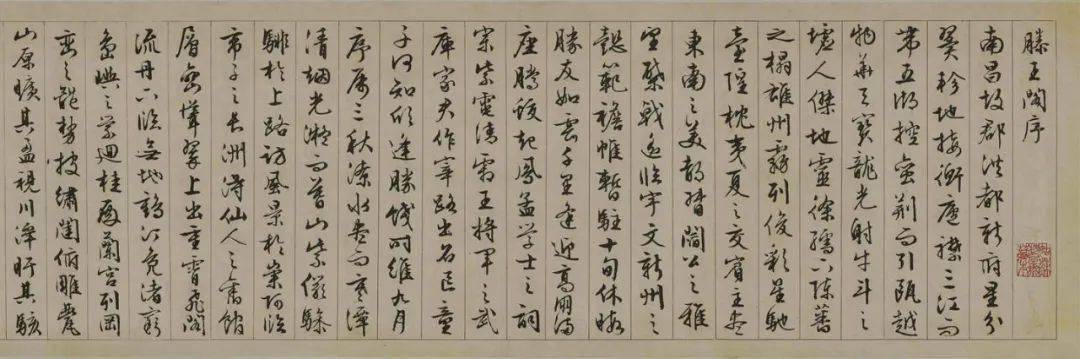 滕王閣序
南昌故郡洪都新府星分
翼軫地接衡廬襟三江而
帶五湖控蠻荊而引甌越
物華天寶龍光射牛斗之
墟人傑地靈徐孺下陳蕃
之榻雄州霧列俊彩星馳
臺隍枕夷夏之交賓主盡
東南之美都督閻公之雅
望棨戟遙臨宇文新州之
懿範襜帷暫駐十旬休暇
勝友如雲千里逢迎高朋滿
座騰蛟起鳳孟學士之詞
宗紫電清霜王將軍之武
庫家君作宰路出名區童
子何知欣逢勝餞時維九月
序屬三秋潦水盡而寒潭
清烟光凝而暮山紫儼驂
騑於上路訪風景於崇阿臨
帝子之長洲得仙人之舊館
層巒聳翠上出重霄飛閣
流丹下臨無地鶴汀鳧渚窮
島嶼之縈迴桂殿蘭宮列岡
巒之體勢披繡闥俯雕甍
山原曠其盈視川澤盱其駭